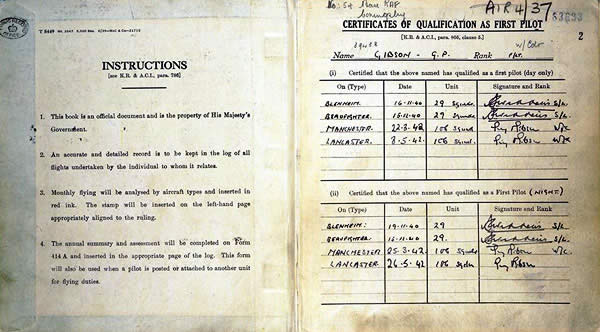 T 8449
INSTRUCTIONS
[see K.R. & A.C.I., para. 786]
1. This book is an official document and is the property of His Majesty's
Government.
2. An accurate and detailed record is to be kept in the log of all
flights undertaken by the individual to whom it relates.
3. Monthly flying will be analysed by aircraft types and inserted in
red ink. The stamp will be inserted on the left-hand page
appropriately aligned to the ruling.
4. The annual summary and assessment will be completed on Form
414 A and inserted in the appropriate page of the log. This form
will also be used when a pilot is posted or attached to another unit
for flying duties.
AIR 4/37
CERTIFICATES OF QUALIFICATION AS FIRST PILOT
[K.R. & A.C.I., para. 805, clause 5.]
2
W/Cdr
Name GIBSON - G.P. Rank F/LT.
(i) Certified that the above named has qualified as a first pilot (day only)
On (Type) Date Unit Signature and Rank
BLENHEIM 16-11-40 29 Squdn S/L.
BEAUFIGHTER 15-11-40 29 Squdn S/L.
MANCHESTER 22-3-42 106 Squd. Guy Gibson W/C
LANCASTER 8-5-42 106 Squd. Guy Gibson W/C
(ii) Certified that the above named has qualified as a First Pilot (NIGHT.)
On (Type) Date Unit Signature and Rank
BLENHEIM: 19-11-40 29 S/L.
BEAUFIGHTER. 15-11-40 29. S/L.
MANCHESTER 25-3-42. 106 Squdn Guy Gibson W/C.
LANCASTER 26-5-42 106 Sqdn Guy Gibson